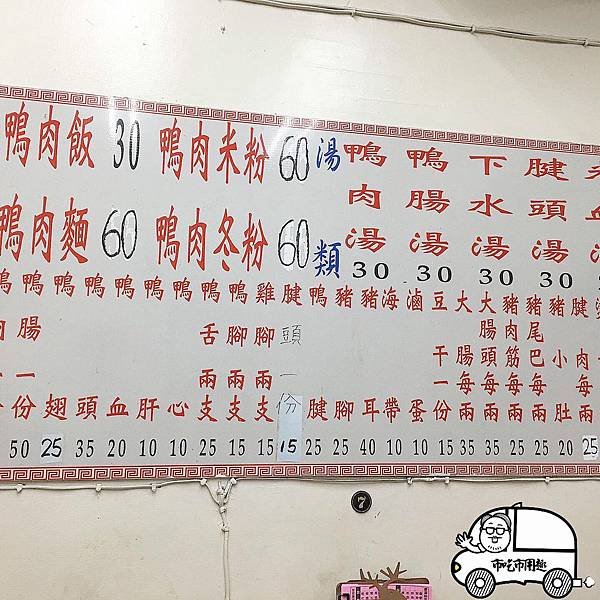 鴨肉飯 30 鴨肉米粉 60
鴨肉麵 60 鴨肉冬粉 60
湯類
鴨肉湯 30
鴨腸湯 30
下水湯 30
腱頭湯 30
鴨腸一份 50
鴨翅 25
鴨頭 35
鴨血 20
鴨肝 10
鴨心 10
鴨舌兩支 25
鴨腳兩支 15
雞腳兩支 15
腱頭一份 15
鴨腱 25
豬腳 25
豬耳 40
海帶 10
滷蛋 10
豆干一份 15
大腸每兩 35
大腸頭每兩 30
豬肉筋每兩 35
豬尾巴每兩 25
豬小肚 20
25
7
市吃市用趣